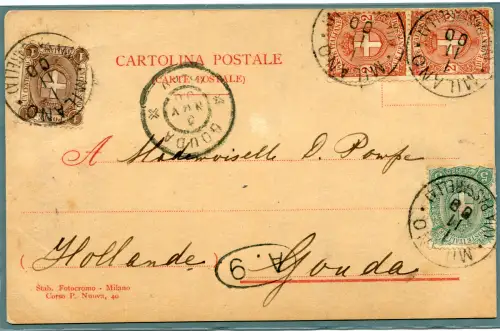 CARTOLINA POSTALE
(CARTE POSTALE)
MILANO
MILANO
MILANO
MILANO
GOUDA
A Mademoiselle D. Pompe
Hollande
A. 9
Gouda
Stab. Fotocromo - Milano
Corso P. Nuova, 40